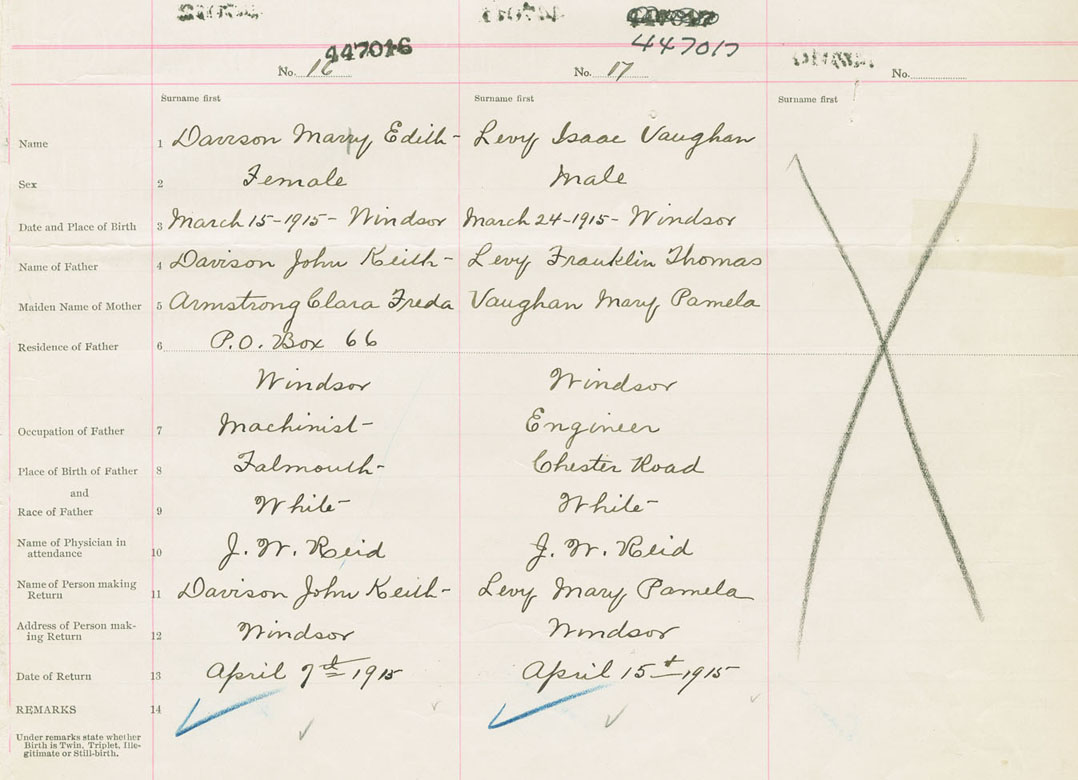 447016
447017
No. 16
No. 17
447017
No.
Surname first
Surname first
Surname first
Name 1 Davison Mary Edith- Levy Isaac Vaughan
Sex 2 Female Male
Date and Place of Birth 3 March 15-1915- Windsor March 24-1915- Windsor
Name of Father 4 Davison John Keith- Levy Franklin Thomas
Maiden Name of Mother 5 Armstrong Clara Freda Vaughan Mary Pamela
Residence of Father 6 P.O. Box 66
Windsor Windsor
Occupation of Father 7 Machinist- Engineer
Place of Birth of Father 8 Falmouth- Chester Road
and
Race of Father 9 White- White-
Name of Physician in
attendance 10 J. W. Reid J. W. Reid
Name of Person making
Return 11 Davison John Keith- Levy Mary Pamela
Address of Person mak-
ing Return 12 Windsor Windsor
Date of Return 13 April 7th 1915 April 15t 1915
REMARKS 14
Under remarks state whether
Birth is Twin, Triplet, Ille-
gitimate or Still-birth.